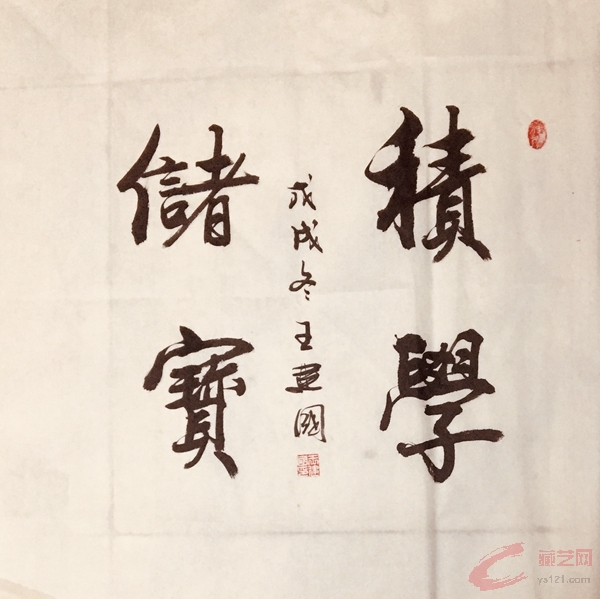 積學
戊戌冬王國
儲寶
藏艺网
ys121.com